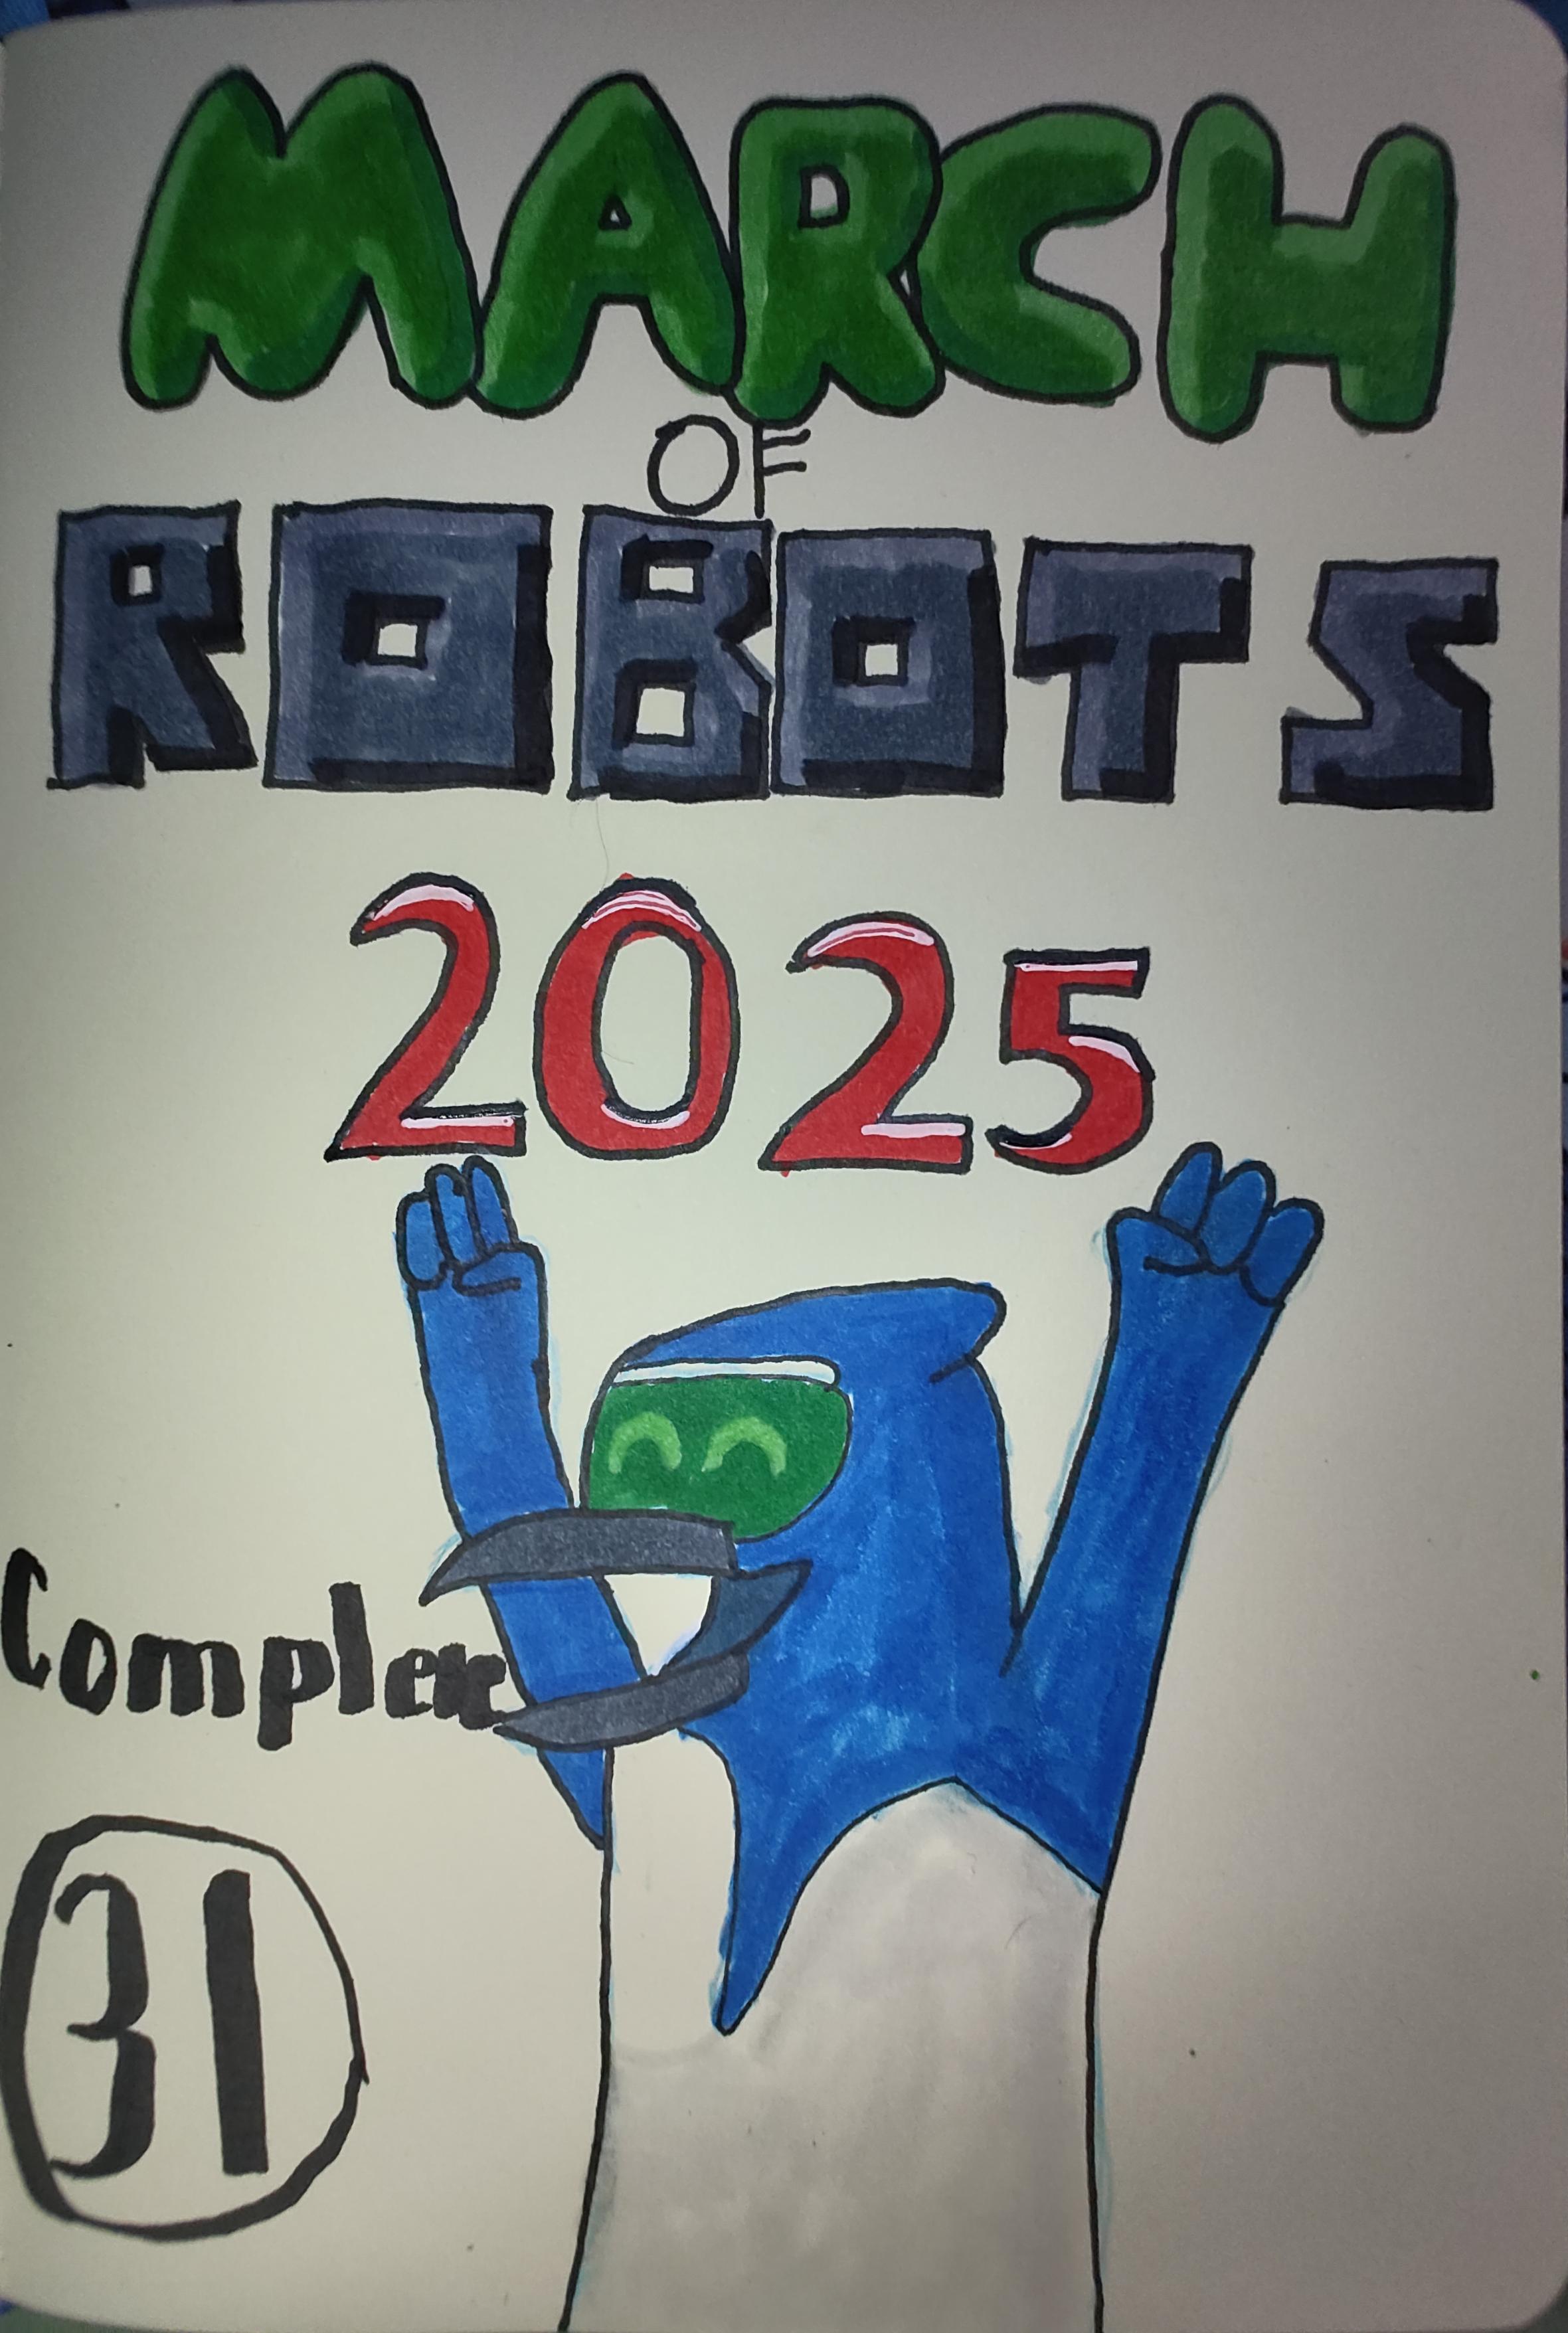 MARCH
OF
ROBOTS
2025
Complete
31